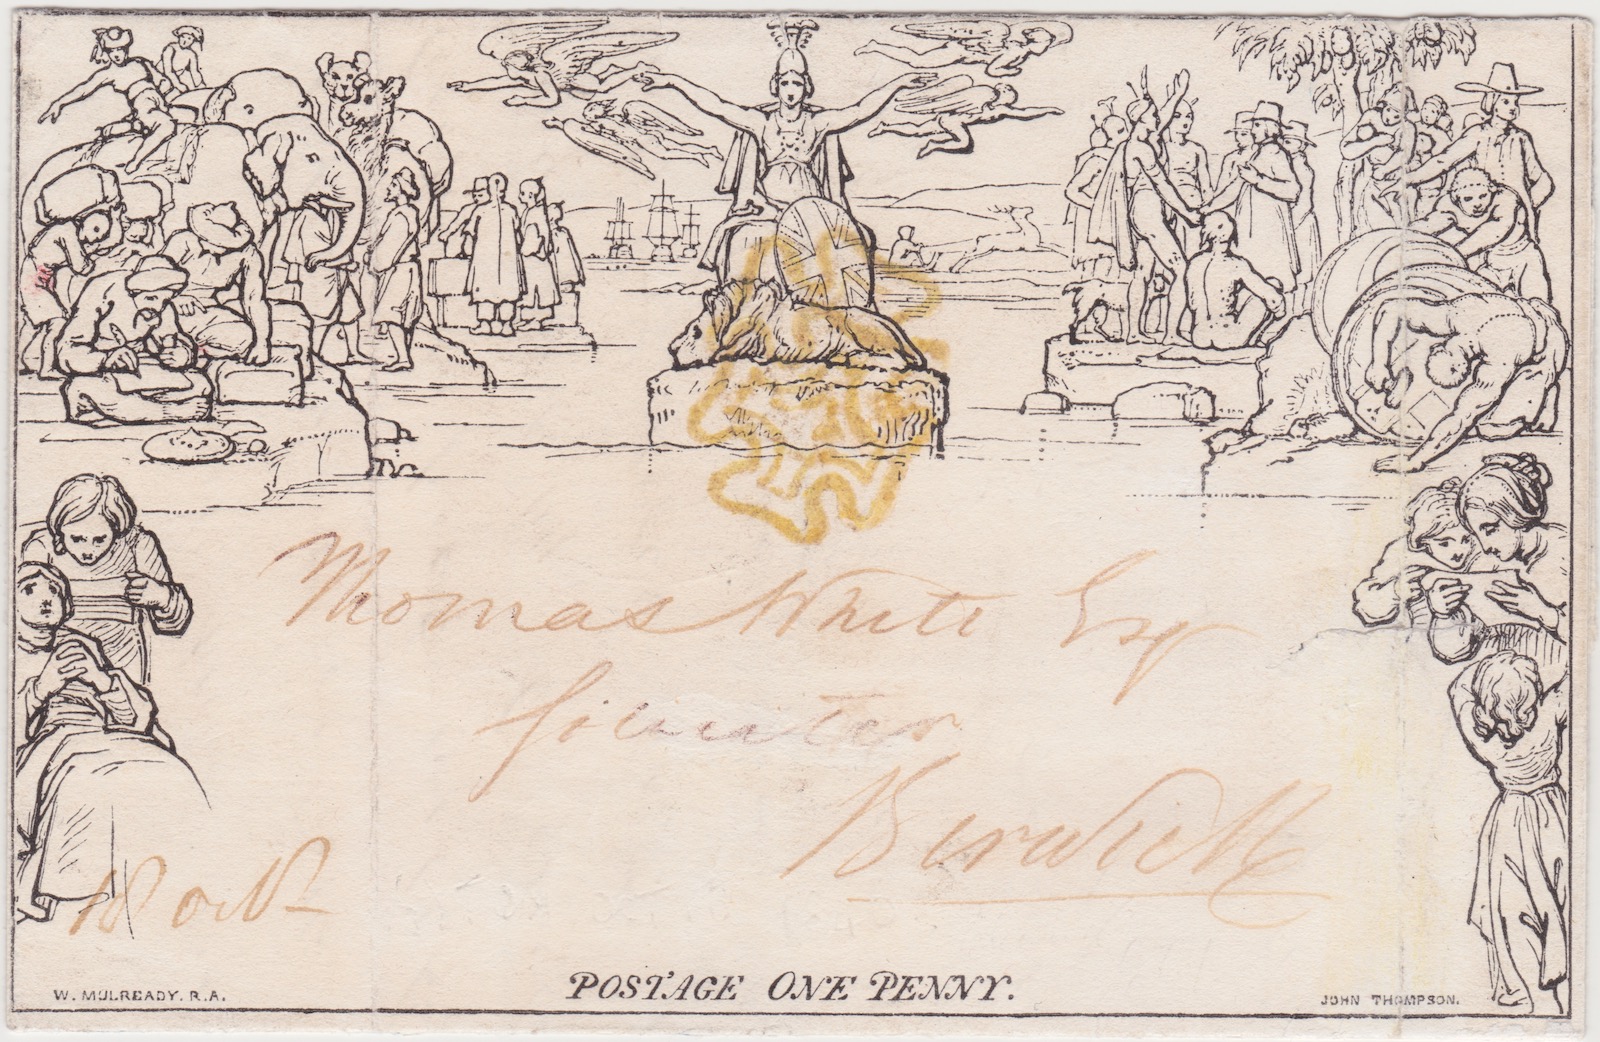 Thomas White Esq
Solicitor
Berwick
18 Oct
POSTAGE ONE PENNY.
W. MULREADY. R.A.
JOHN THOMPSON.